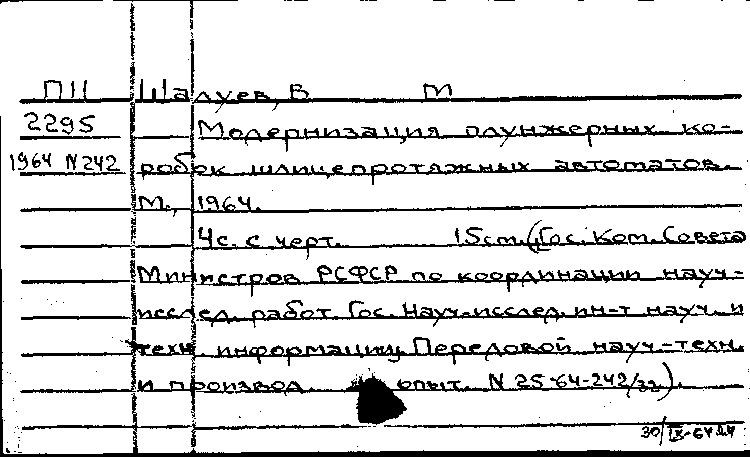 ПН Шалуев, В М
2295 Модернизация плунжерных ко-
1964 N 242 робок шлицепротяжных автоматов.
М., 1964.
4с. с черт. 15 см. (Гос. Ком. Совета
Министров РСФСР по координации науч-
исслед. работ. Гос. Науч.-исслед. ин-т науч. и
техн. информации. Передовой науч-техн.
и производ. опыт. N 25-64-242/32).
30/IX-64